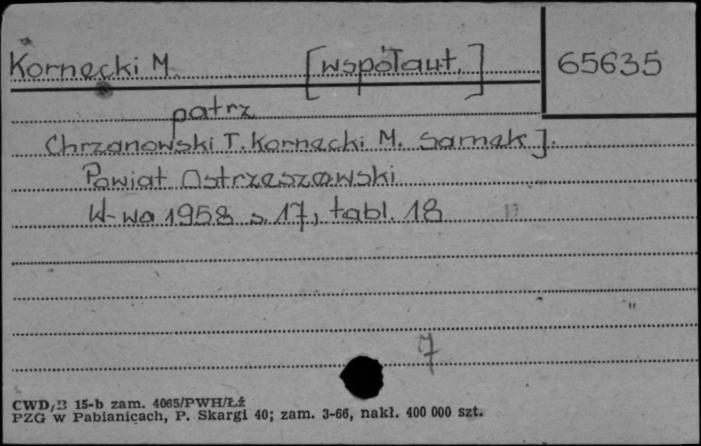 Kornecki M. [współaut.] 65635
patrz
Chrzanowski T. Kornecki M. Samek J.
Powiat Ostrzeszowski
W-wa 1958 s. 17, tabl. 18
7
CWD/B 15-b zam. 4065/PWH/Łź
PZG w Pabianicach, P. Skargi 40; zam. 3-66, nakł. 400 000 szt.